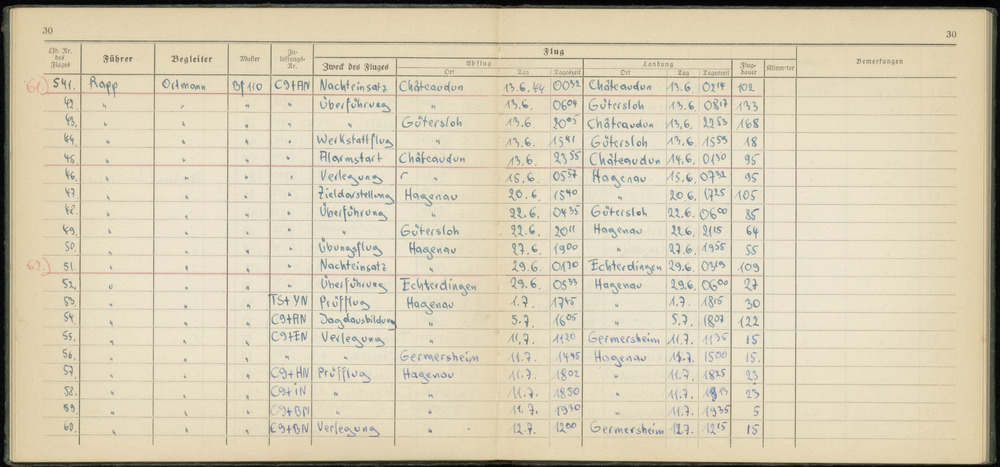 30
30
Lfd. Nr. des Fluges Führer Begleiter Muster Zulassungs-Nr. Zweck des Fluges Flug Abflug Ort Tag Tageszeit Landung Ort Tag Tageszeit Flugdauer Kilometer Bemerkungen
61.) 541. Rapp Ortmann Bf 110 C9+AN Nachteinsatz Châteaudun 13.6.44 0032 Châteaudun 13.6. 0214 102
42. " " " " Überführung " 13.6. 0604 Gütersloh 13.6. 0817 133
43. " " " " " Gütersloh 13.6. 2005 Châteaudun 13.6. 2253 168
44. " " " " Werkstattflug 13.6. 1541 Gütersloh 13.6. 1559 18
45. " " " " Alarmstart Châteaudun 13.6. 2355 Châteaudun 14.6. 0130 95
46. " " " " Verlegung " 15.6. 0557 Hagenau 15.6. 0732 95
47. " " " " Zieldarstellung Hagenau 20.6. 1540 " 20.6. 1725 105
48. " " " " Überführung " 22.6. 0435 Gütersloh 22.6. 0600 85
49. " " " " " Gütersloh 22.6. 2011 Hagenau 22.6. 2115 64
50. " " " " Übungsflug Hagenau 27.6. 1900 " 27.6. 1955 55
51. " " " " Nachteinsatz " 29.6. 0130 Echterdingen 29.6. 0319 109
52. " " " " Überführung Echterdingen 29.6. 0533 Hagenau 29.6. 0600 27
53. " " " TS+YN Prüfflug Hagenau 1.7. 1745 " 1.7. 1815 30
54. " " " C9+AN Jagdausbildung " 5.7. 1605 " 5.7. 1807 122
55. " " " C9+EN Verlegung " 11.7. 1120 Germersheim 11.7. 1135 15
56. " " " " " Germersheim 11.7. 1445 Hagenau 11.7. 1500 15.
57. " " " C9+HN Prüfflug Hagenau 11.7. 1802 " 11.7. 1825 23
58. " " " C9+iN " " 11.7. 1850 " 11.7. 1913 23
59. " " " C9+BN " " 11.7. 1930 " 11.7. 1935 5
60. " " " C9+BN Verlegung " 12.7. 1200 Germersheim 12.7. 1215 15